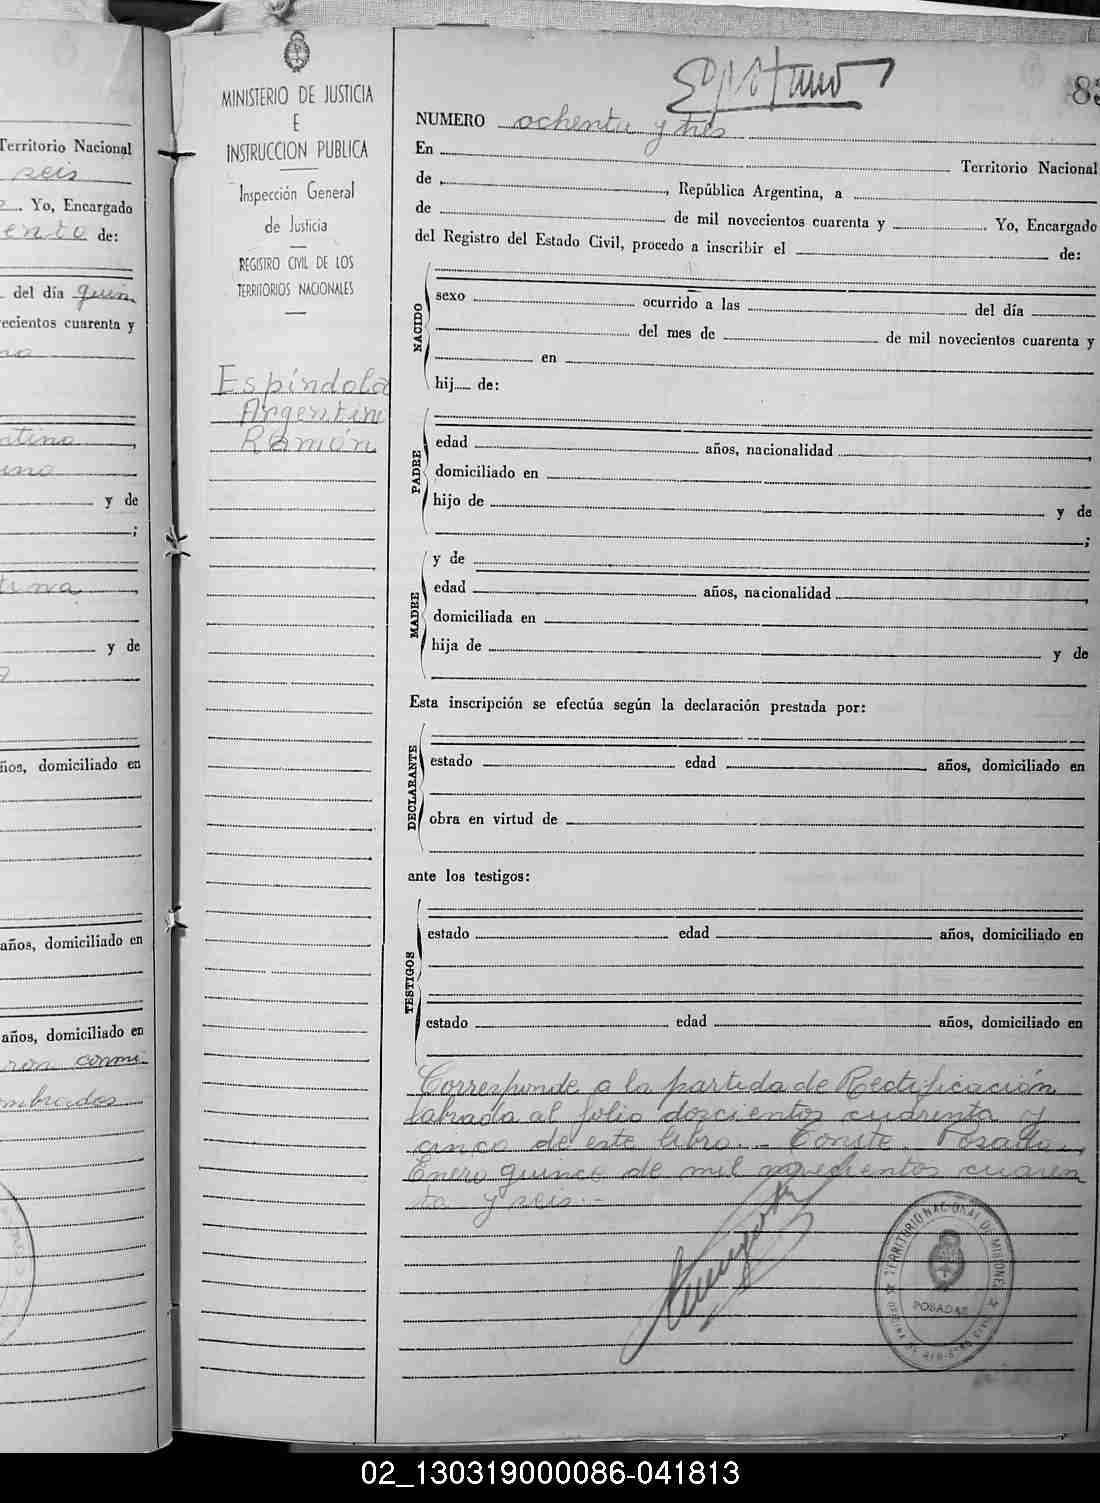 Territorio Nacional
seis
Yo, Encargado
ento de:
del día quin
ecientos cuarenta y
ntina
y de
;
tina
y de
ños, domiciliado en
años, domiciliado en
años, domiciliado en
ron conmi
mbrados
MINISTERIO DE JUSTICIA
E
INSTRUCCION PUBLICA
Inspección General
de Justicia
REGISTRO CIVIL DE LOS
TERRITORIOS NACIONALES
Espíndola
Argentino
Ramón
83
NUMERO ochenta y tres
En Territorio Nacional
de , República Argentina, a
de de mil novecientos cuarenta y Yo, Encargado
del Registro del Estado Civil, procedo a inscribir el de:
NACIDO
sexo ocurrido a las del día
del mes de de mil novecientos cuarenta y
en
hij de:
PADRE
edad años, nacionalidad ,
domiciliado en
hijo de y de
;
MADRE
y de
edad años, nacionalidad ,
domiciliada en
hija de y de
Esta inscripción se efectúa según la declaración prestada por:
DECLARANTE
estado edad años, domiciliado en
obra en virtud de
ante los testigos:
TESTIGOS
estado edad años, domiciliado en
estado edad años, domiciliado en
Corresponde a la partida de Rectificación
labrada al folio doscientos cuarenta y
cinco de este libro.- Conste. Posadas,
Enero quince de mil novecientos cuaren
ta y seis.-
TERRITORIO NACIONAL DE MISIONES
POSADAS
02_130319000086-041813